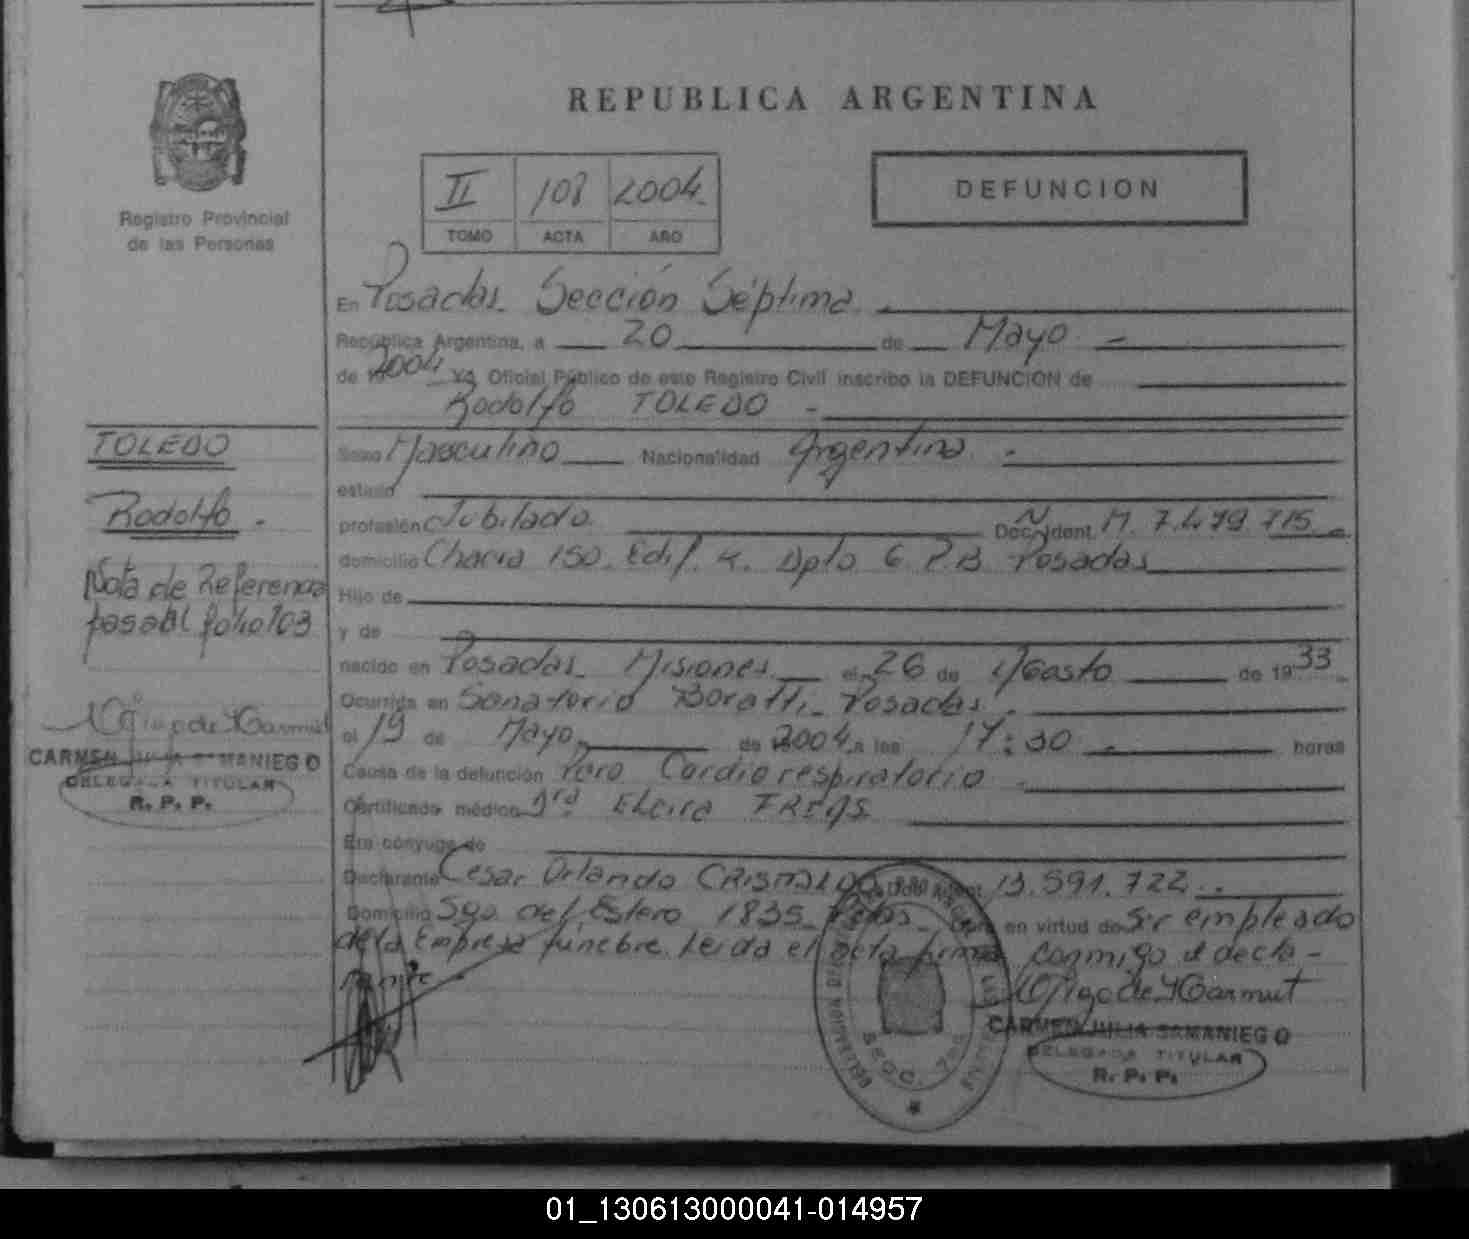 REPUBLICA ARGENTINA
Registro Provincial
de las Personas
II 108 2004
TOMO ACTA AÑO
DEFUNCION
En Posadas Sección Séptima
República Argentina, a 20 de Mayo
de 2004 yo Oficial Público de este Registro Civil inscribo la DEFUNCION de
Rodolfo TOLEDO
TOLEDO
Rodolfo
Nota de Referencia
pasa al folio 103
CARMEN JULIA SAMANIEGO
DELEGADA TITULAR
R. P. P.
Sexo Masculino Nacionalidad Argentina
estado
profesión Jubilado Doc. Ident. M. 7.479.715
domicilio Chacra 150. Edif. 4. Dpto 6 P.B Posadas
Hijo de
y de
nacido en Posadas Misiones el 26 de Agosto de 1933
Ocurrida en Sanatorio Boratti Posadas
el 19 de Mayo de 2004 a las 17:30 horas
Causa de la defunción Paro Cardiorespiratorio
Certificado médico Dra Elcira
Era cónyuge de
Declarante Cesar Orlando 13.591.722
Domicilio Sgo del Estero 1835 Pdas. Obra en virtud de Ser empleado
de la Empresa fúnebre. Leida el acta firma conmigo el decla-
rante
SECC. 7ma
CARMEN JULIA SAMANIEGO
DELEGADA TITULAR
R. P. P.
01_130613000041-014957